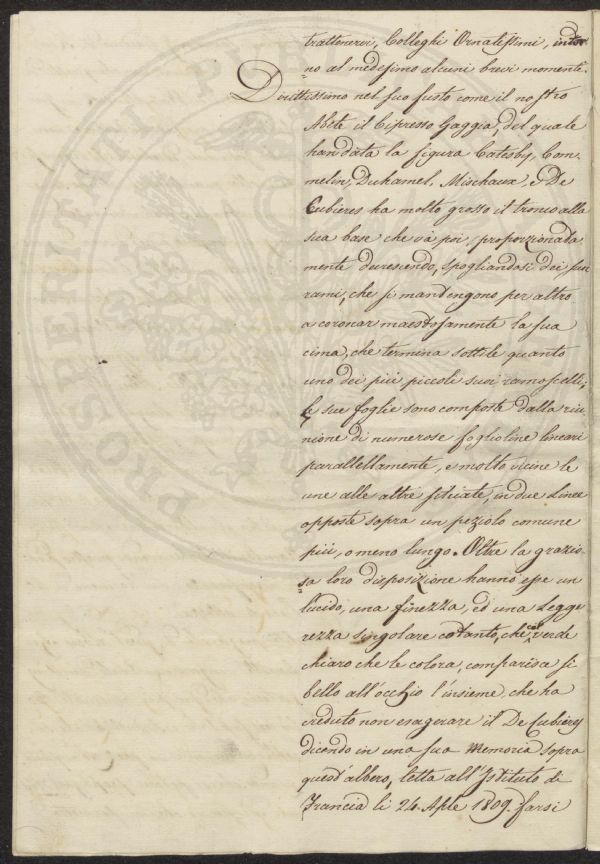 trattenervi, Colleghi Ornatissimi, intor
no al medesimo alcuni brevi momenti.
Dirittissimo nel suo fusto come il nostro
Abete il Cipresso Gaggia, del quale
han data la figura Catesby, Com=
melin, Duhamel, Mischaux, e De
Cubieres ha molto grosso il tronco alla
sua base che và poi proporzionata
mente decrescendo, spogliandosi dei suoi
rami, che si mantengono per altro
a coronar maestosamente la sua
cima, che termina sottile quanto
uno dei più piccoli suoi ramoscelli;
le sue foglie sono composte dalla riu
nione di numerose foglioline lineari
parallellamente, e molto vicine le
une alle altre situate, in due linee
opposte sopra un peziolo comune
più, o meno lungo. Oltre la grazio=
sa loro disposizione hanno esse un
lucido, una finezza, ed una legge
rezza singolare cotanto, che col verde
chiaro che le colora, comparisce sì
bello all'occhio l'insieme, che ha
creduto non esagerare il De Cubieres
dicendo in una sua Memoria sopra
quest'albero, letta all'Istituto di
Francia li 24. Aple 1809. farsi
PROSPERITATI PUBLI